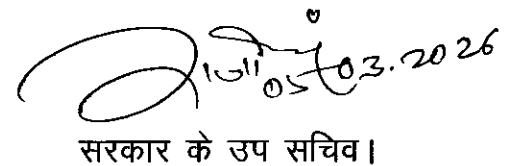 05.03.2026
सरकार के उप सचिव।